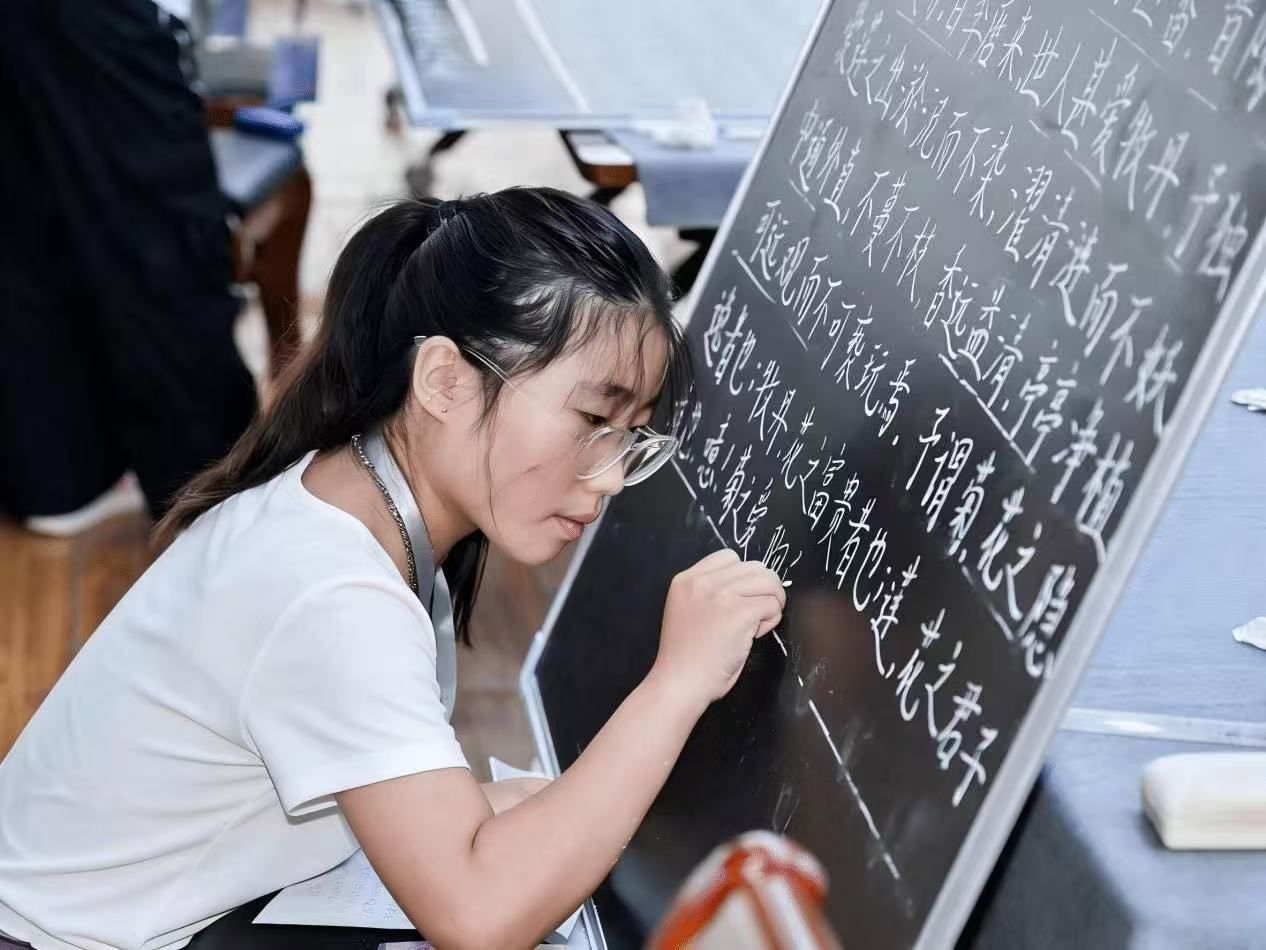 蕃，晋
自李唐来，世人甚爱牡丹，予独
爱莲之出淤泥而不染，濯清涟而不妖
中通外直，不蔓不枝，香远益清，亭亭净植
可远观而不可亵玩焉，予谓菊，花之隐
逸者也；牡丹，花之富贵者也；莲，花之君子
噫！菊之爱，